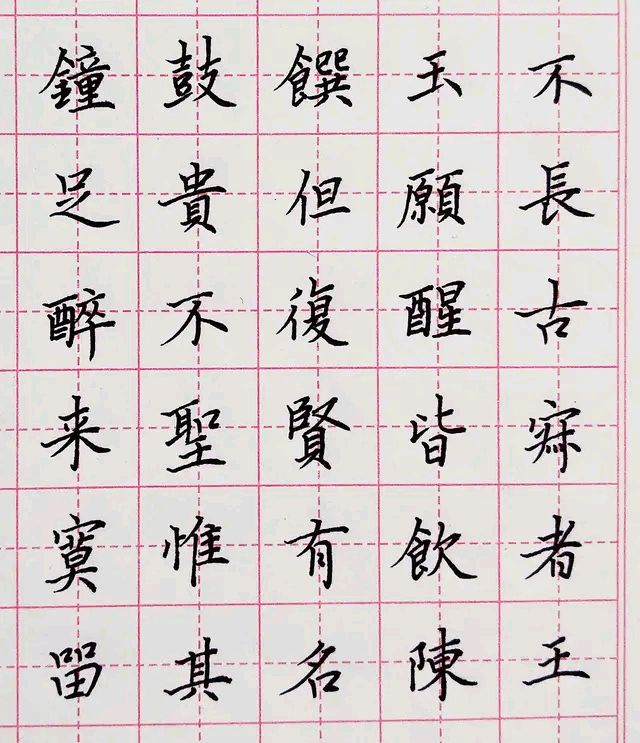 鐘鼓饌玉不
足貴但願長
醉不復醒古
来聖賢皆寂
寞惟有飲者
留其名陳王